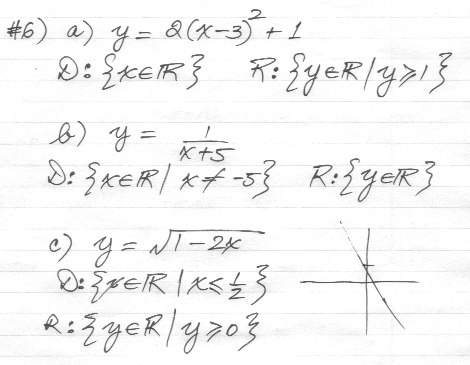 #6) a) y = 2(x-3)² + 1
D: {x∈ℝ} R: {y∈ℝ | y≥1}
b) y = 1/(x+5)
D: {x∈ℝ | x ≠ -5} R: {y∈ℝ}
c) y = √(1-2x)
D: {x∈ℝ | x≤ 1/2}
R: {y∈ℝ | y≥0}